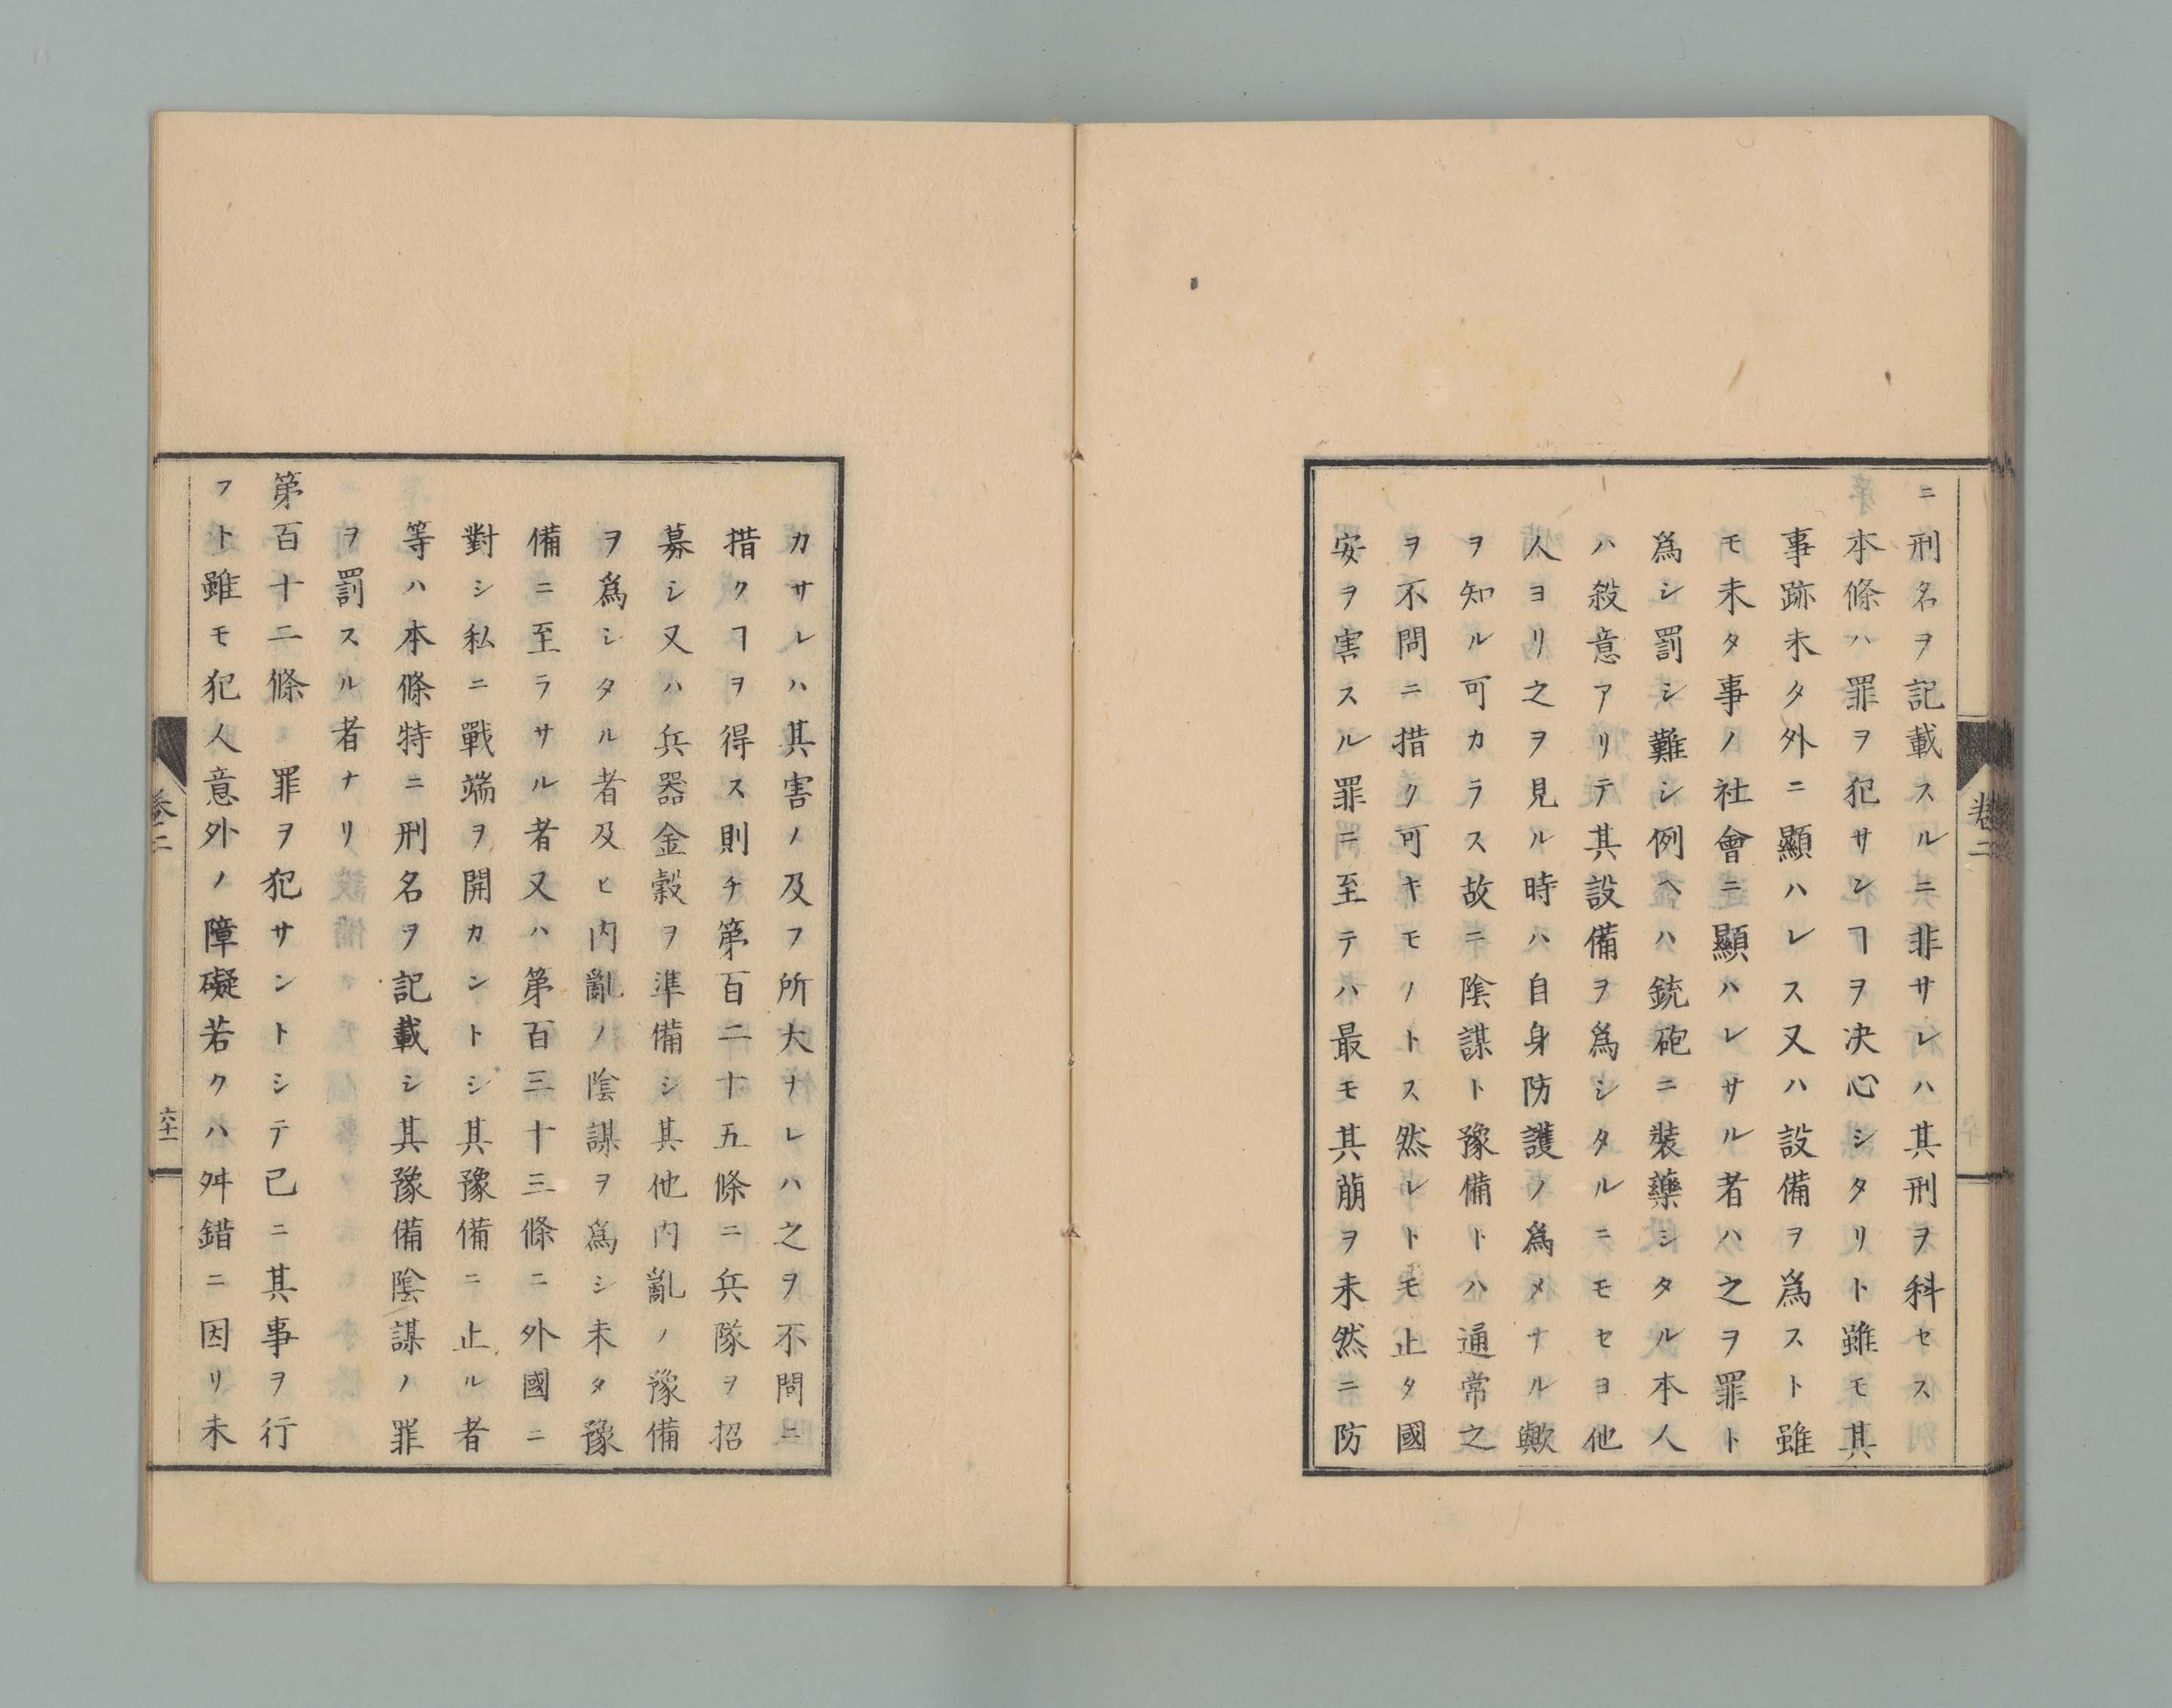 卷二
ニ刑名ヲ記載スルニ非サレハ其刑ヲ科セス
本條ハ罪ヲ犯サンヿヲ决心シタリト雖モ其
事跡未タ外ニ顯ハレス又ハ設備ヲ爲スト雖
モ未タ事ノ社會ニ顯ハレサル者ハ之ヲ罪ト
爲シ罰シ難シ例ヘハ銃砲ニ裝藥シタル本人
ハ殺意アリテ其設備ヲ爲シタルニモセヨ他
人ヨリ之ヲ見ル時ハ自身防護ノ爲メナル歟
ヲ知ル可カラス故ニ陰謀ト豫備トハ通常之
ヲ不問ニ措ク可キモノトス然レトモ止タ國
安ヲ害スル罪ニ至テハ最モ其萠ヲ未然ニ防
カサレハ其害ノ及フ所大ナレハ之ヲ不問ニ
措クヿヲ得ス則チ第百二十五條ニ兵隊ヲ招
募シ又ハ兵器金穀ヲ準備シ其他内亂ノ豫備
ヲ爲シタル者及ヒ内亂ノ陰謀ヲ爲シ未タ豫
備ニ至ラサル者又ハ第百三十三條ニ外國ニ
對シ私ニ戰端ヲ開カントシ其豫備ニ止ル者
等ハ本條特ニ刑名ヲ記載シ其豫備陰謀ノ罪
ヲ罰スル者ナリ
第百十二條 罪ヲ犯サントシテ已ニ其事ヲ行
フト雖モ犯人意外ノ障礙若クハ舛錯ニ因リ未
卷二
六十一